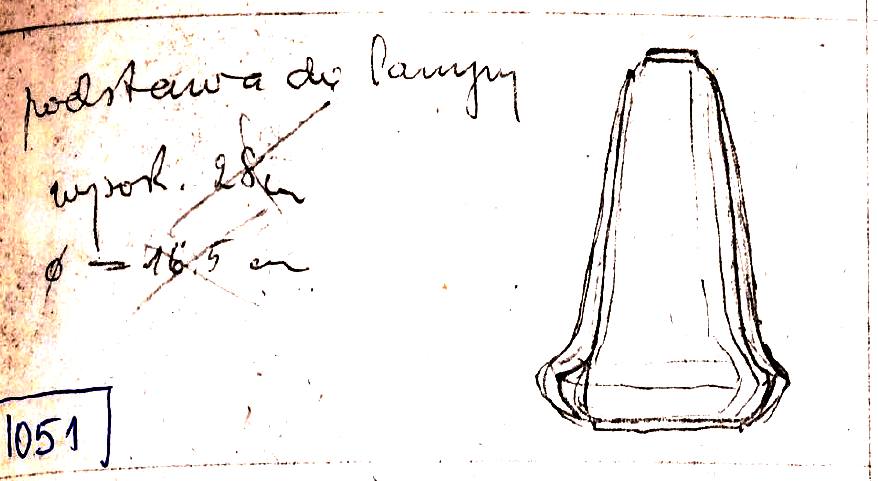 podstawa do lampy
wysok. 28 cm
ø = 16.5 cm
1051